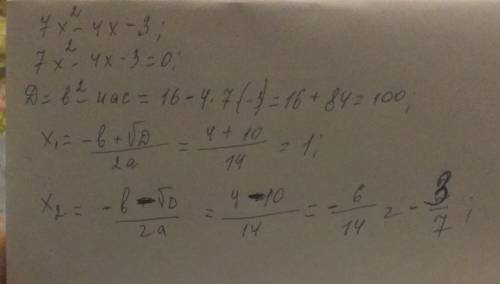 7x² - 4x - 3;
7x² - 4x - 3 = 0;
D = b² - 4ac = 16 - 4·7(-3) = 16 + 84 = 100;
x₁ = (-b + √D)/(2a) = (4 + 10)/14 = 1;
x₂ = (-b - √D)/(2a) = (4 - 10)/14 = -6/14 = -3/7;